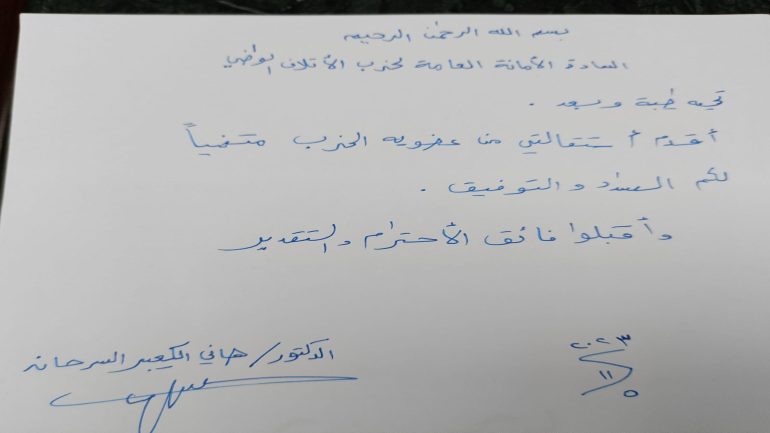 بسم الله الرحمن الرحيم
السادة الأمانة العامة لحزب الأتلاف الوطني
تحية طيبة وبعد .
أقدم أستقالتي من عضوية الحزب متمنياً
لكم السداد والتوفيق .
وأقبلوا فائق الأحترام والتقدير
الدكتور/ هاني الكعيبر السرحان
٢٠٢٣
١١
٥